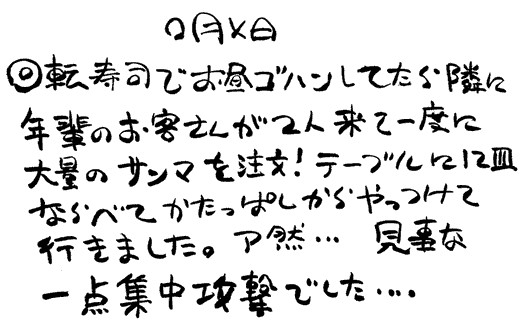 〇月×日
◎転寿司でお昼ゴハンしてたら隣に
年輩のお客さんが2人来て一度に
大量のサンマを注文!テーブルに12皿
ならべてかたっぱしからやっつけて
行きました。ア然… 見事な
一点集中攻撃でした….